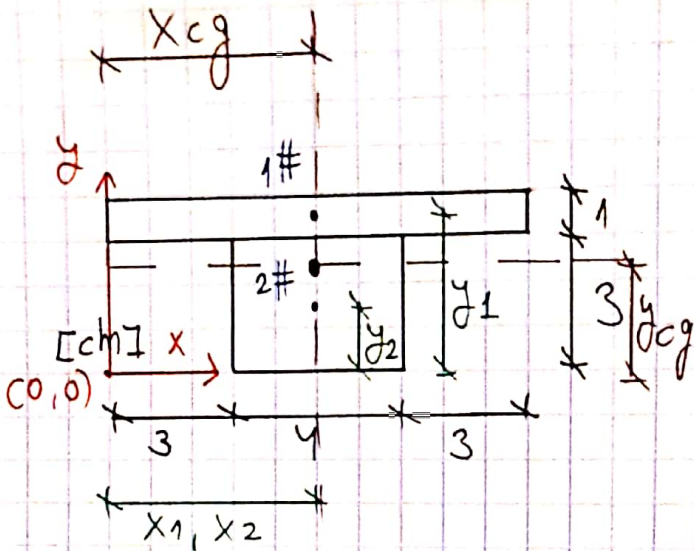 Xcg
y
1#
1
2#
y1
3
ycg
y2
[cm] x
(0,0)
3
4
3
x1, x2